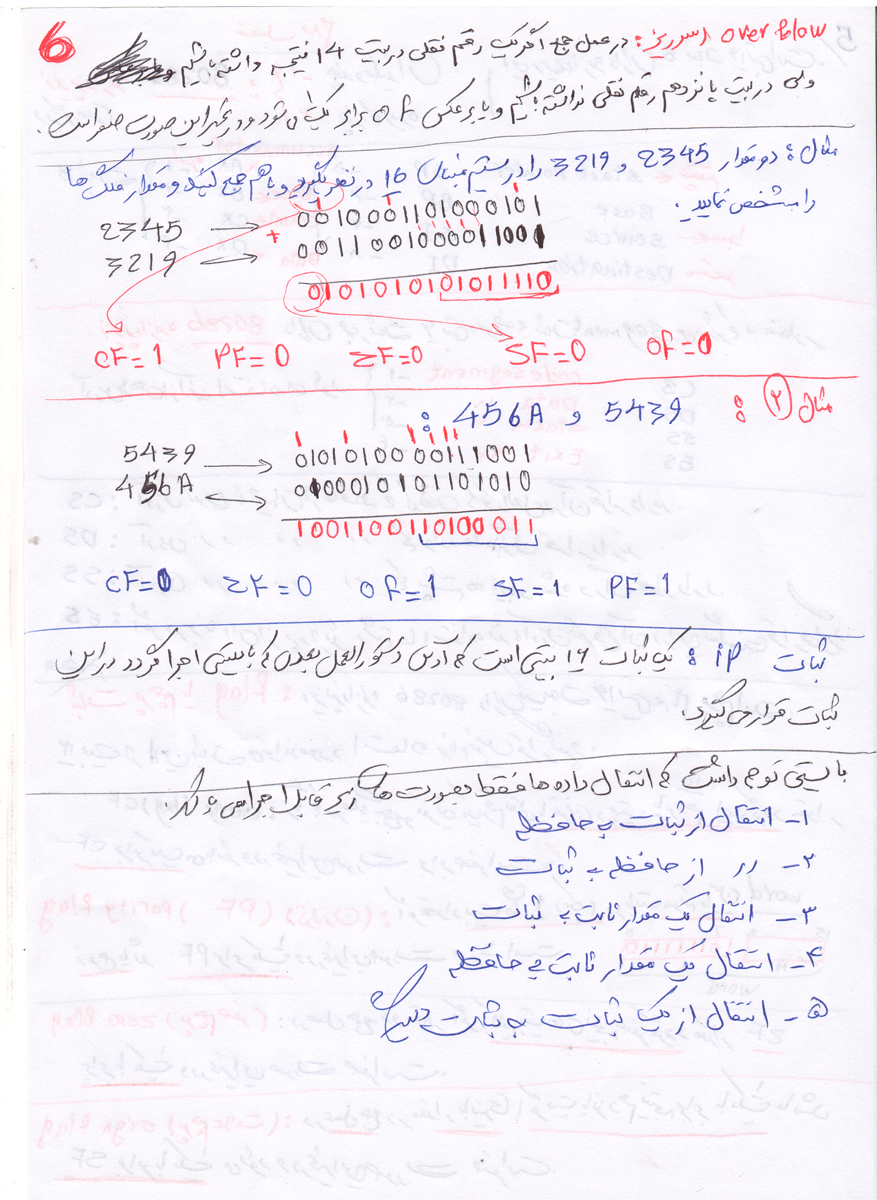 6
over flow اسرریز: در عمل جمع اگر یک رقم نقلی در بیت 14 نتیجه داشته باشیم
ولی در بیت پانزدهم رقم نقلی نداشته باشیم و یا برعکس of برابر یک می شود و در غیر این صورت صفر است.
مثال: دو مقدار 2345 و 3219 را در سیستم مبنای 16 در نظر بگیرید و با هم جمع کنید و مقدار فلگ ها
را مشخص نمایید.
2345 → 0010001101000101
+
3219 → 0011001000011001
0101010101011110
CF=1 PF=0 ZF=0 SF=0 OF=0
مثال ۲: 5439 و 456A:
5439 → 0101010000111001
456A → 0100010101101010
1001100110100011
CF=0 ZF=0 OF=1 SF=1 PF=1
ثبات iP: یک ثبات 16 بیتی است که آدرس دستورالعمل بعدی که بایستی اجرا گردد در این
ثبات قرار می گیرد.
بایستی توجه داشت که انتقال داده ها فقط بصورت های زیر قابل اجرا می
۱- انتقال از ثبات به حافظه
۲- رر از حافظه به ثبات
۳- انتقال یک مقدار ثابت به ثبات
۴- انتقال یک مقدار ثابت به حافظه
۵- انتقال از یک ثبات به ثبات دیگر